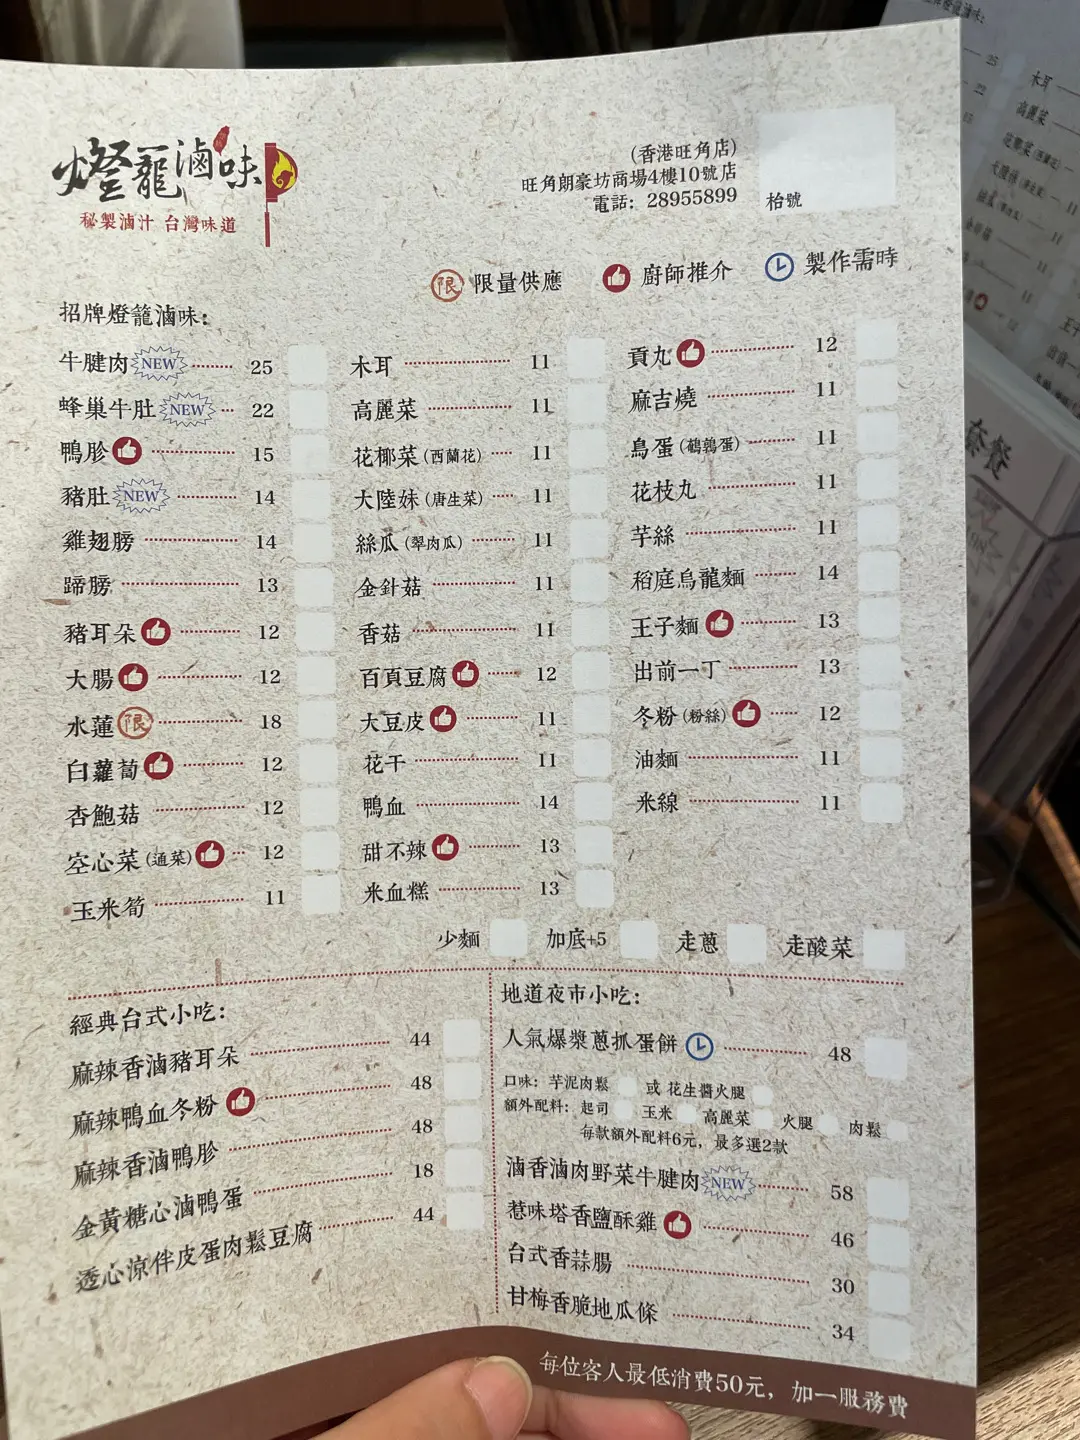 燈籠滷味
秘製滷汁 台灣味道
(香港旺角店)
旺角朗豪坊商場4樓10號店
電話：28955899
枱號
限 限量供應 廚師推介 製作需時
招牌燈籠滷味：
牛腱肉 NEW 25
蜂巢牛肚 NEW 22
鴨胗 15
豬肚 NEW 14
雞翅膀 14
蹄膀 13
豬耳朵 12
大腸 12
水蓮 限 18
白蘿蔔 12
杏鮑菇 12
空心菜 (通菜) 12
玉米筍 11
木耳 11
高麗菜 11
花椰菜 (西蘭花) 11
大陸妹 (唐生菜) 11
絲瓜 (翠肉瓜) 11
金針菇 11
香菇 11
百頁豆腐 12
大豆皮 11
花干 11
鴨血 14
甜不辣 13
米血糕 13
貢丸 12
麻吉燒 11
鳥蛋 (鵪鶉蛋) 11
花枝丸 11
芋絲 11
稻庭烏龍麵 14
王子麵 13
出前一丁 13
冬粉 (粉絲) 12
油麵 11
米線 11
少麵 加底+5 走蔥 走酸菜
經典台式小吃：
麻辣香滷豬耳朵 44
麻辣鴨血冬粉 48
麻辣香滷鴨胗 48
金黃糖心滷鴨蛋 18
透心涼伴皮蛋肉鬆豆腐 44
地道夜市小吃：
人氣爆漿蔥抓蛋餅 48
口味：芋泥肉鬆 或 花生醬火腿
額外配料：起司 玉米 高麗菜 火腿 肉鬆
每款額外配料6元，最多選2款
滷香滷肉野菜牛腱肉 NEW 58
惹味塔香鹽酥雞 46
台式香蒜腸 30
甘梅香脆地瓜條 34
每位客人最低消費50元，加一服務費
木耳
高麗菜
套餐